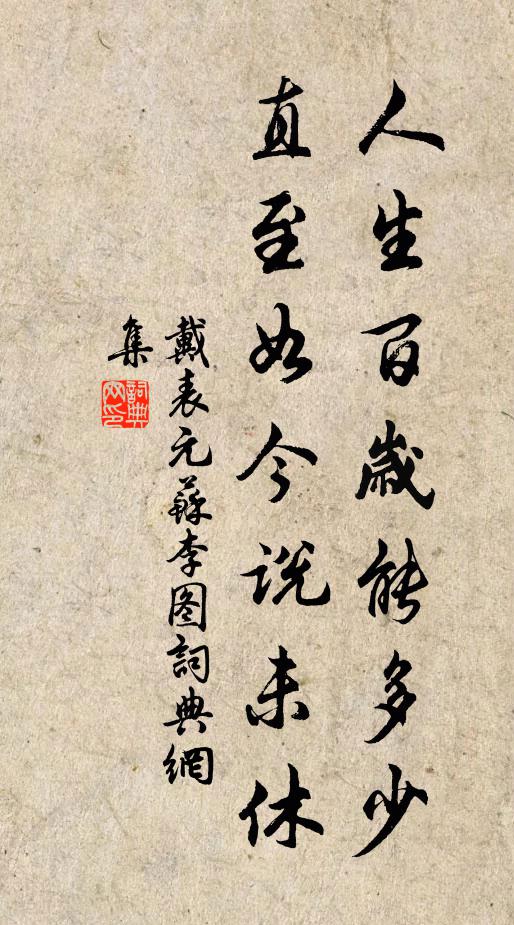 人生百歲能多少
直至如今說未休
戴表元蘇李图詞典網
集
詞典網印